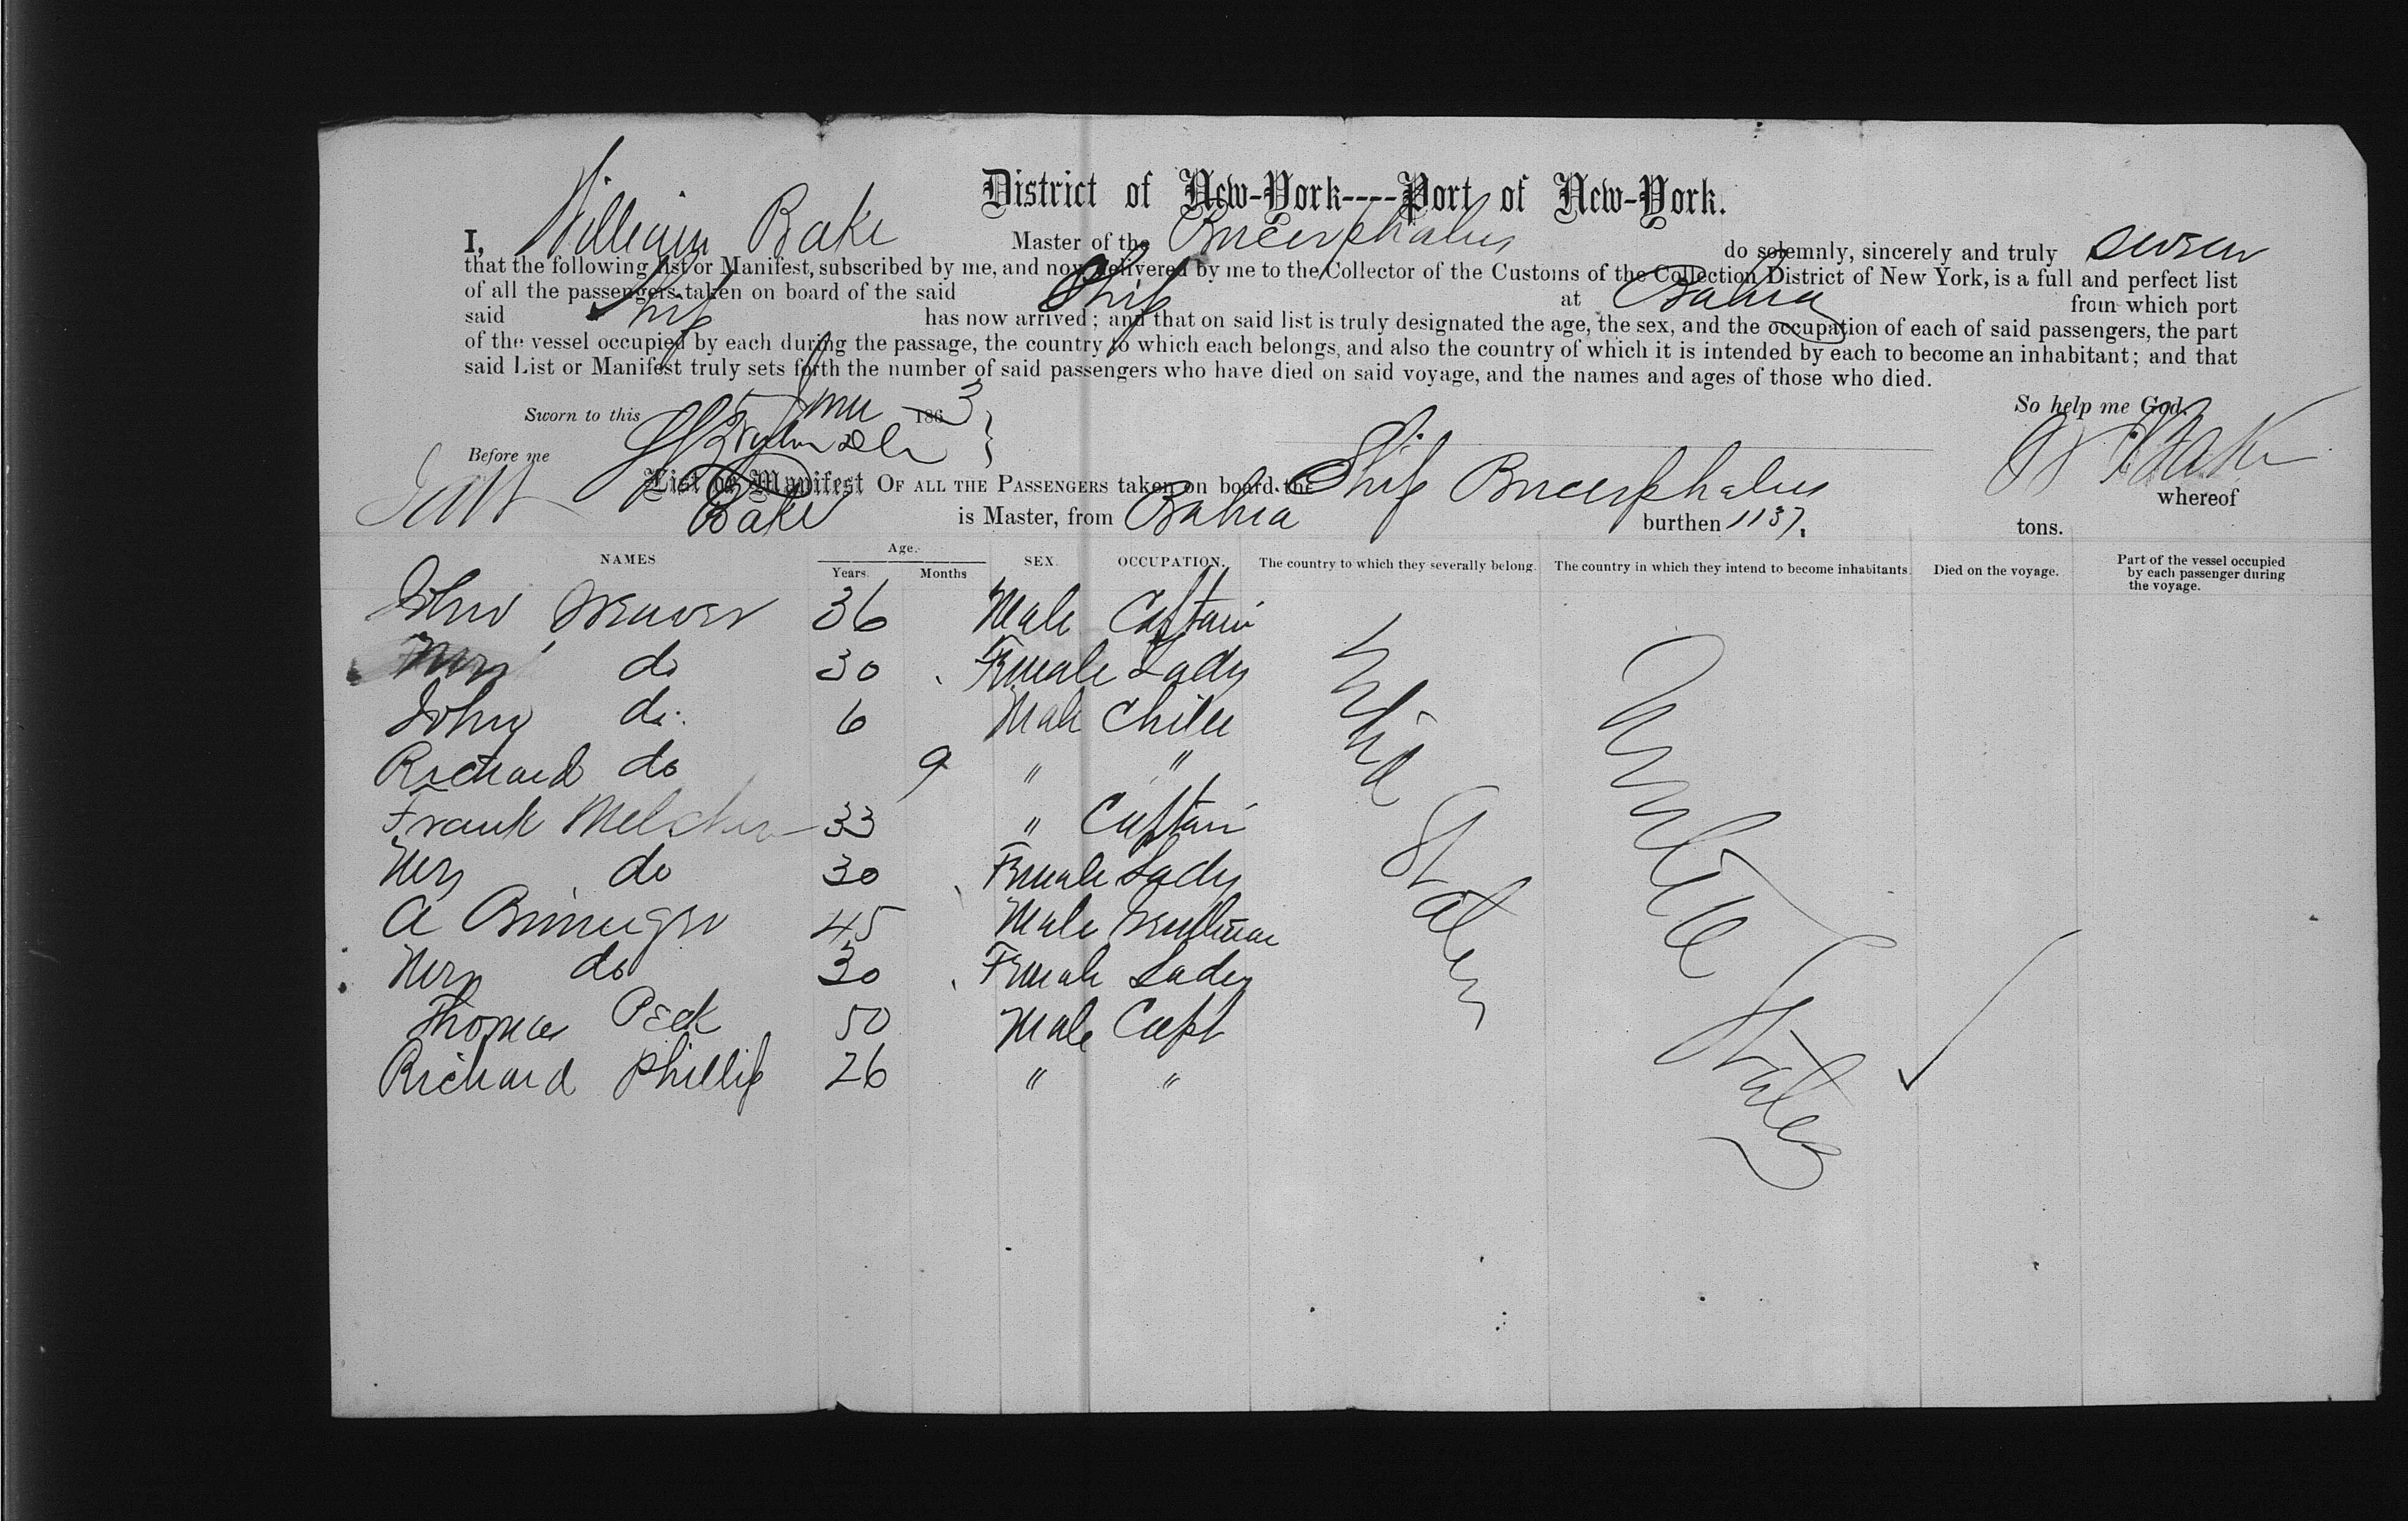 District of New-York----Port of New-York.
I, William Bake Master of the Bucephalus do solemnly, sincerely and truly swear
that the following list or Manifest, subscribed by me, and now delivered by me to the Collector of the Customs of the Collection District of New York, is a full and perfect list
of all the passengers taken on board of the said Ship at Bahia from which port
said Ship has now arrived; and that on said list is truly designated the age, the sex, and the occupation of each of said passengers, the part
of the vessel occupied by each during the passage, the country to which each belongs, and also the country of which it is intended by each to become an inhabitant; and that
said List or Manifest truly sets forth the number of said passengers who have died on said voyage, and the names and ages of those who died.
Sworn to this 5 June 1863 So help me God.
Before me W Bake
List or Manifest OF ALL THE PASSENGERS taken on board the Ship Bucephalus whereof
Bake is Master, from Bahia burthen 1137. tons.
NAMES Age. Years. Months SEX. OCCUPATION. The country to which they severally belong. The country in which they intend to become inhabitants. Died on the voyage. Part of the vessel occupied by each passenger during the voyage.
John 36 Male Captain
Mrs do 30 Female Lady
John do. 6 Male Child
Richard do 9 " "
Frank Melcher 33 " Captain
Mrs do 30 Female Lady
A 45 Male Gentleman
Mrs do 30 Female Lady
Thomas Peck 50 Male Capt
Richard Phillip 26 " "
United States
United States